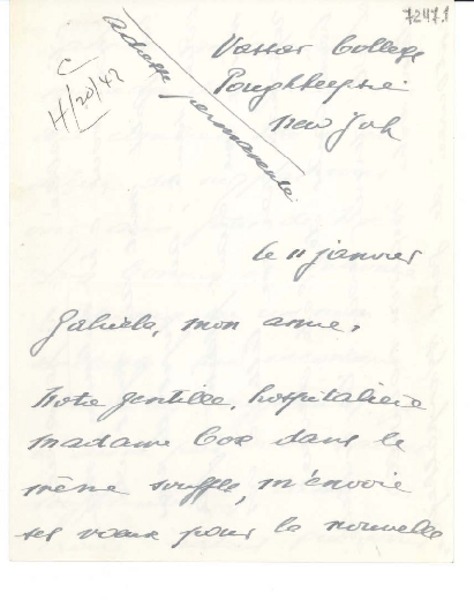 7247.1
Vassar College
Poughkeepsie
New York
adresse permanente
C
4/20/42
le 11 janvier
Gabriela, mon amie,
Notre gentille, hospitalière
madame Cox dans le
même souffle, m'envoie
ses vœux pour la nouvelle